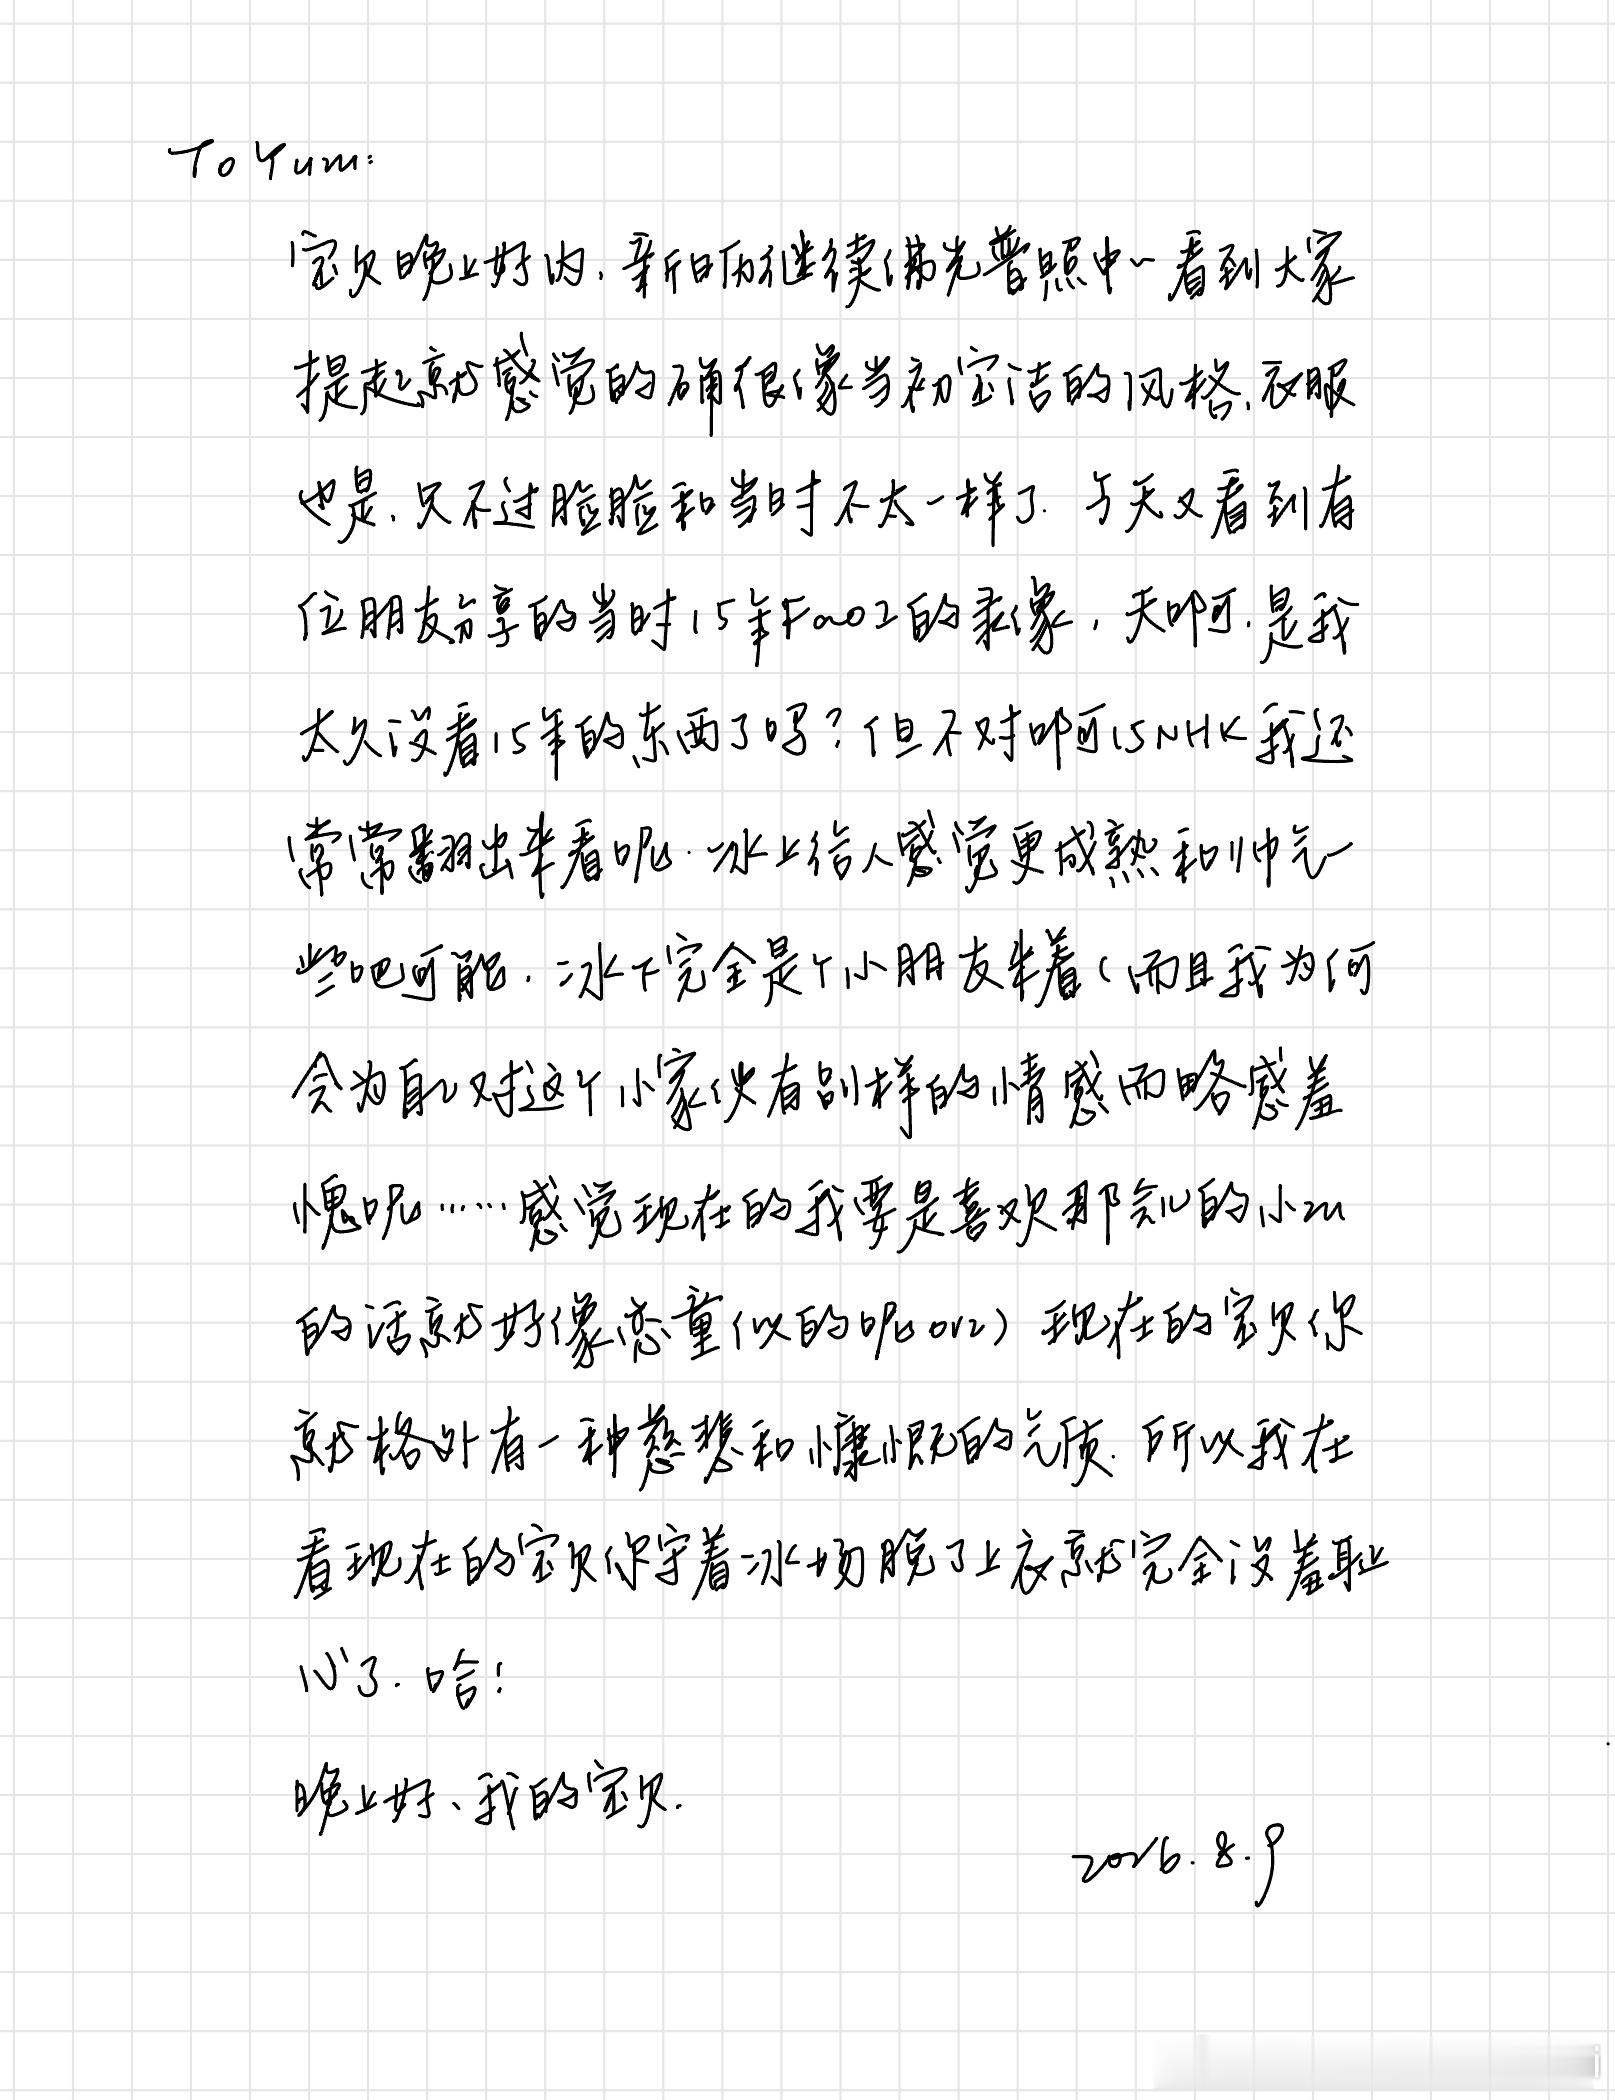 To Yum:
宝贝晚上好内，新旧历继续佛光普照中～看到大家
提起就感觉的确很像当初宝洁的风格，衣服
也是，只不过脸脸和当时不太一样了．今天又看到有
位朋友分享的当时15年FaOI的录像，天啊，是我
太久没看15年的东西了吗？但不对啊15NHK我还
常常翻出来看呢．冰上给人感觉更成熟和帅气一
些吧可能．冰下完全是个小朋友来着（而且我为何
会为自己对这个小家伙有别样的情感而略感羞
愧呢……感觉现在的我要是喜欢那会儿的小zu
的话就好像恋童似的呢orz）现在的宝贝你
就格外有一种慈悲和慷慨的气质．所以我在
看现在的宝贝你穿着冰场脱了上衣就完全没羞耻
心了．哈！
晚上好、我的宝贝．
2026.8.9